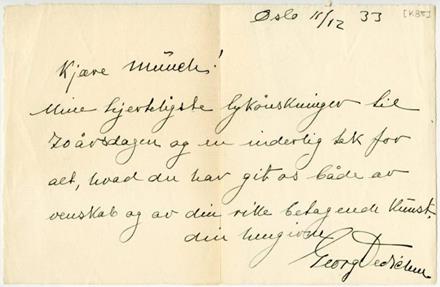 Oslo 11/12 33 [K85]
Kjære Münch!
Mine hjerteligste lykönskninger til
70 årsdagen og en inderlig tak for
alt, hvad du har git os både av
venskab og av din rike betagende kunst.
din hengivne
Georg Dedichen